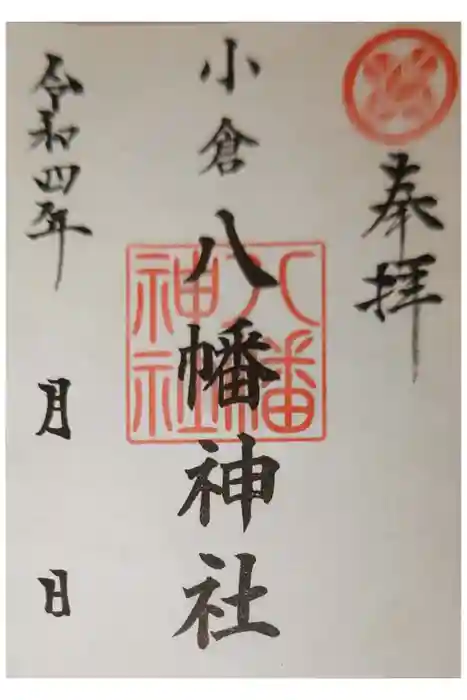 奉拝
小倉八幡神社
八幡
神社
令和四年 月 日